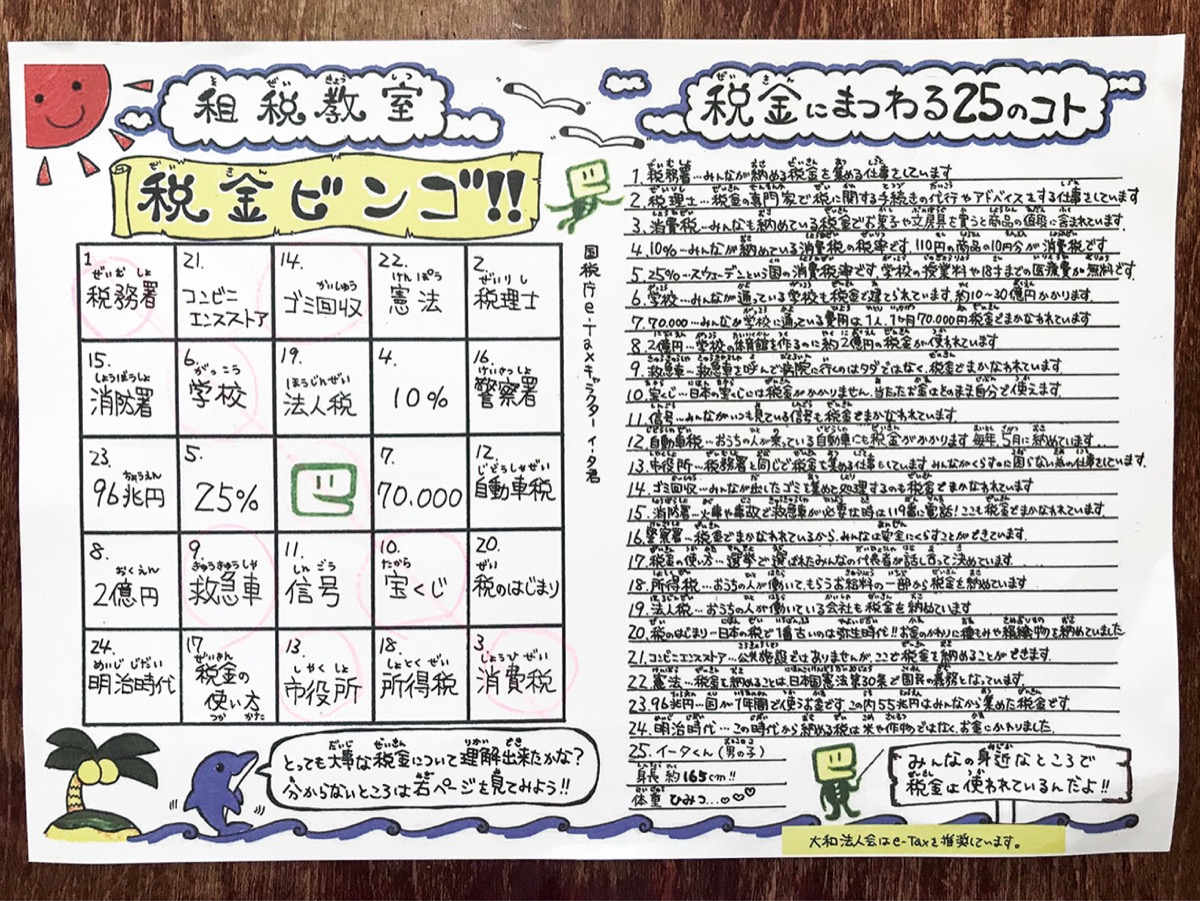 租税教室
税金ビンゴ!!
国税庁e-Taxキャラクター イータ君
1 税務署
21. コンビニエンスストア
14. ゴミ回収
22. 憲法
2. 税理士
15. 消防署
6. 学校
19. 法人税
4. 10%
16. 警察署
23. 96兆円
5. 25%
7. 70.000
12. 自動車税
8. 2億円
9. 救急車
11. 信号
10. 宝くじ
20. 税のはじまり
24. 明治時代
17. 税金の使い方
13. 市役所
18. 所得税
3. 消費税
とっても大事な税金について理解出来たかな?
分からないところは右ページを見てみよう!!
税金にまつわる25のコト
1. 税務署…みんなが納める税金を集める仕事をしています
2. 税理士…税金の専門家で税に関する手続きの代行やアドバイスをする仕事をしています
3. 消費税…みんなも納めている税金でお菓子や文房具を買うと商品の値段に含まれています
4. 10%…みんなが納めている消費税の税率です。110円の商品の10円分が消費税です
5. 25%…スウェーデンという国の消費税率です。学校の授業料や18才までの医療費が無料です。
6. 学校…みんなが通っている学校も税金で建てられています。約10~30億円かかります。
7. 70.000…みんなが学校に通っている費用は1人、1ヶ月70.000円税金でまかなわれています
8. 2億円…学校の体育館を作るのに約2億円の税金が使われています
9. 救急車…救急車を呼んで病院に行くのはタダではなく、税金でまかなわれています
10. 宝くじ…日本の宝くじには税金がかかりません。当たったお金はそのまま自分で使えます。
11. 信号…みんながいつも見ている信号も税金でまかなわれています。
12. 自動車税…おうちの人が乗っている自動車にも税金がかかります 毎年、5月に納めています..
13. 市役所…税務署と同じで税金を集める仕事もしています みんながくらすのに困らない為の仕事をしています.
14. ゴミ回収…みんなが出したゴミを集めて処理するのも税金でまかなわれています
15. 消防署…火事や事故で救急車が必要な時は119番に電話!ここも税金でまかなわれています.
16. 警察署…税金でまかなわれているから、みんなは安全にくらすことができています.
17. 税金の使い方…選挙で選ばれたみんなの代表者が話し合って決めています.
18. 所得税…おうちの人が働いて、もらうお給料の一部から税金を納めています
19. 法人税…おうちの人が働いている会社も税金を納めています
20. 税のはじまり…日本の税で1番古いのは弥生時代!!お金のかわりに種もみや絹織物を納めていました
21. コンビニエンスストア…公共施設ではありませんが、ここで税金を納めることができます.
22. 憲法…税金を納めることは、日本国憲法第30条で国民の義務となっています.
23. 96兆円…国が1年間で使うお金です。この内55兆円はみんなから集めた税金です.
24. 明治時代…この時代から納める税は米や作物ではなく、お金にかわりました.
25. イータくん (男の子)
身長 約165cm!!
体重 ひみつ…♡♡♡
みんなの身近なところで
税金は使われているんだよ!!
大和法人会はe-Taxを推奨しています。